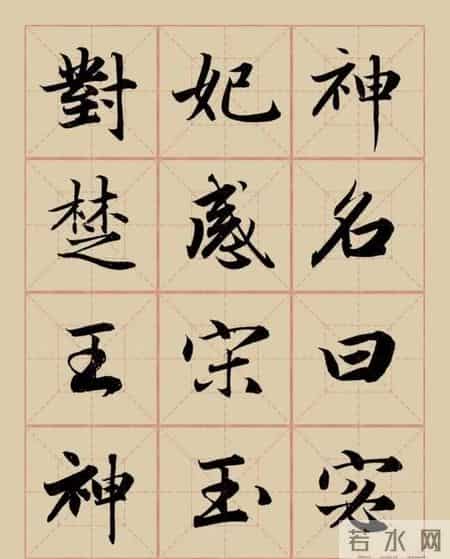 神名曰宓
妃感宋玉
對楚王神
若水网